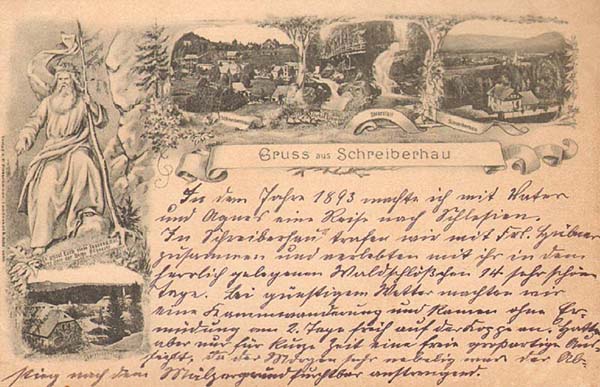 Gruss aus Schreiberhau
In dem Jahre 1893 machte ich mit Vater
und Agnes eine Reise nach Schlesien.
In Schreiberhau trafen wir mit Frl. Hübner
zusammen und verlebten mit ihr in dem
herrlich gelegenen Waldschlößchen 14 sehr schöne
Tage. Bei günstigem Wetter machten wir
eine Kammwanderung und kamen ohne Er-
müdung am 2. Tage früh auf der Koppe an, hatten
aber nur für kurze Zeit eine freie großartige Aus-
sicht, da der Morgen sehr nebelig war der Ab-
stieg nach dem Melzergrund furchtbar anstrengend.